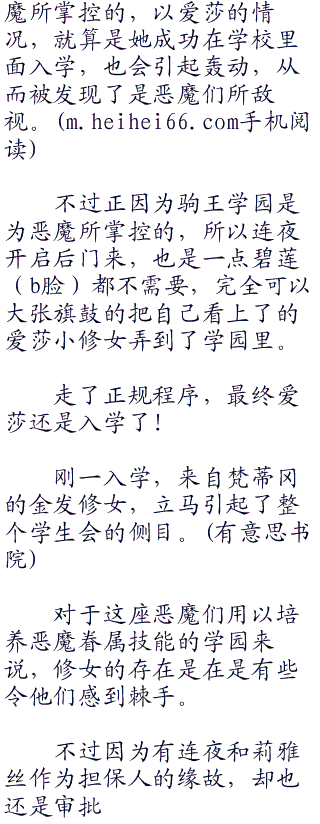 魔所掌控的，以爱莎的情
况，就算是她成功在学校里
面入学，也会引起轰动，从
而被发现了是恶魔们所敌
视。(m.heihei66.com手机阅
读)
不过正因为驹王学园是
为恶魔所掌控的，所以连夜
开启后门来，也是一点碧莲
（b脸）都不需要，完全可以
大张旗鼓的把自己看上了的
爱莎小修女弄到了学园里。
走了正规程序，最终爱
莎还是入学了！
刚一入学，来自梵蒂冈
的金发修女，立马引起了整
个学生会的侧目。(有意思书
院)
对于这座恶魔们用以培
养恶魔眷属技能的学园来
说，修女的存在是在是有些
令他们感到棘手。
不过因为有连夜和莉雅
丝作为担保人的缘故，却也
还是审批